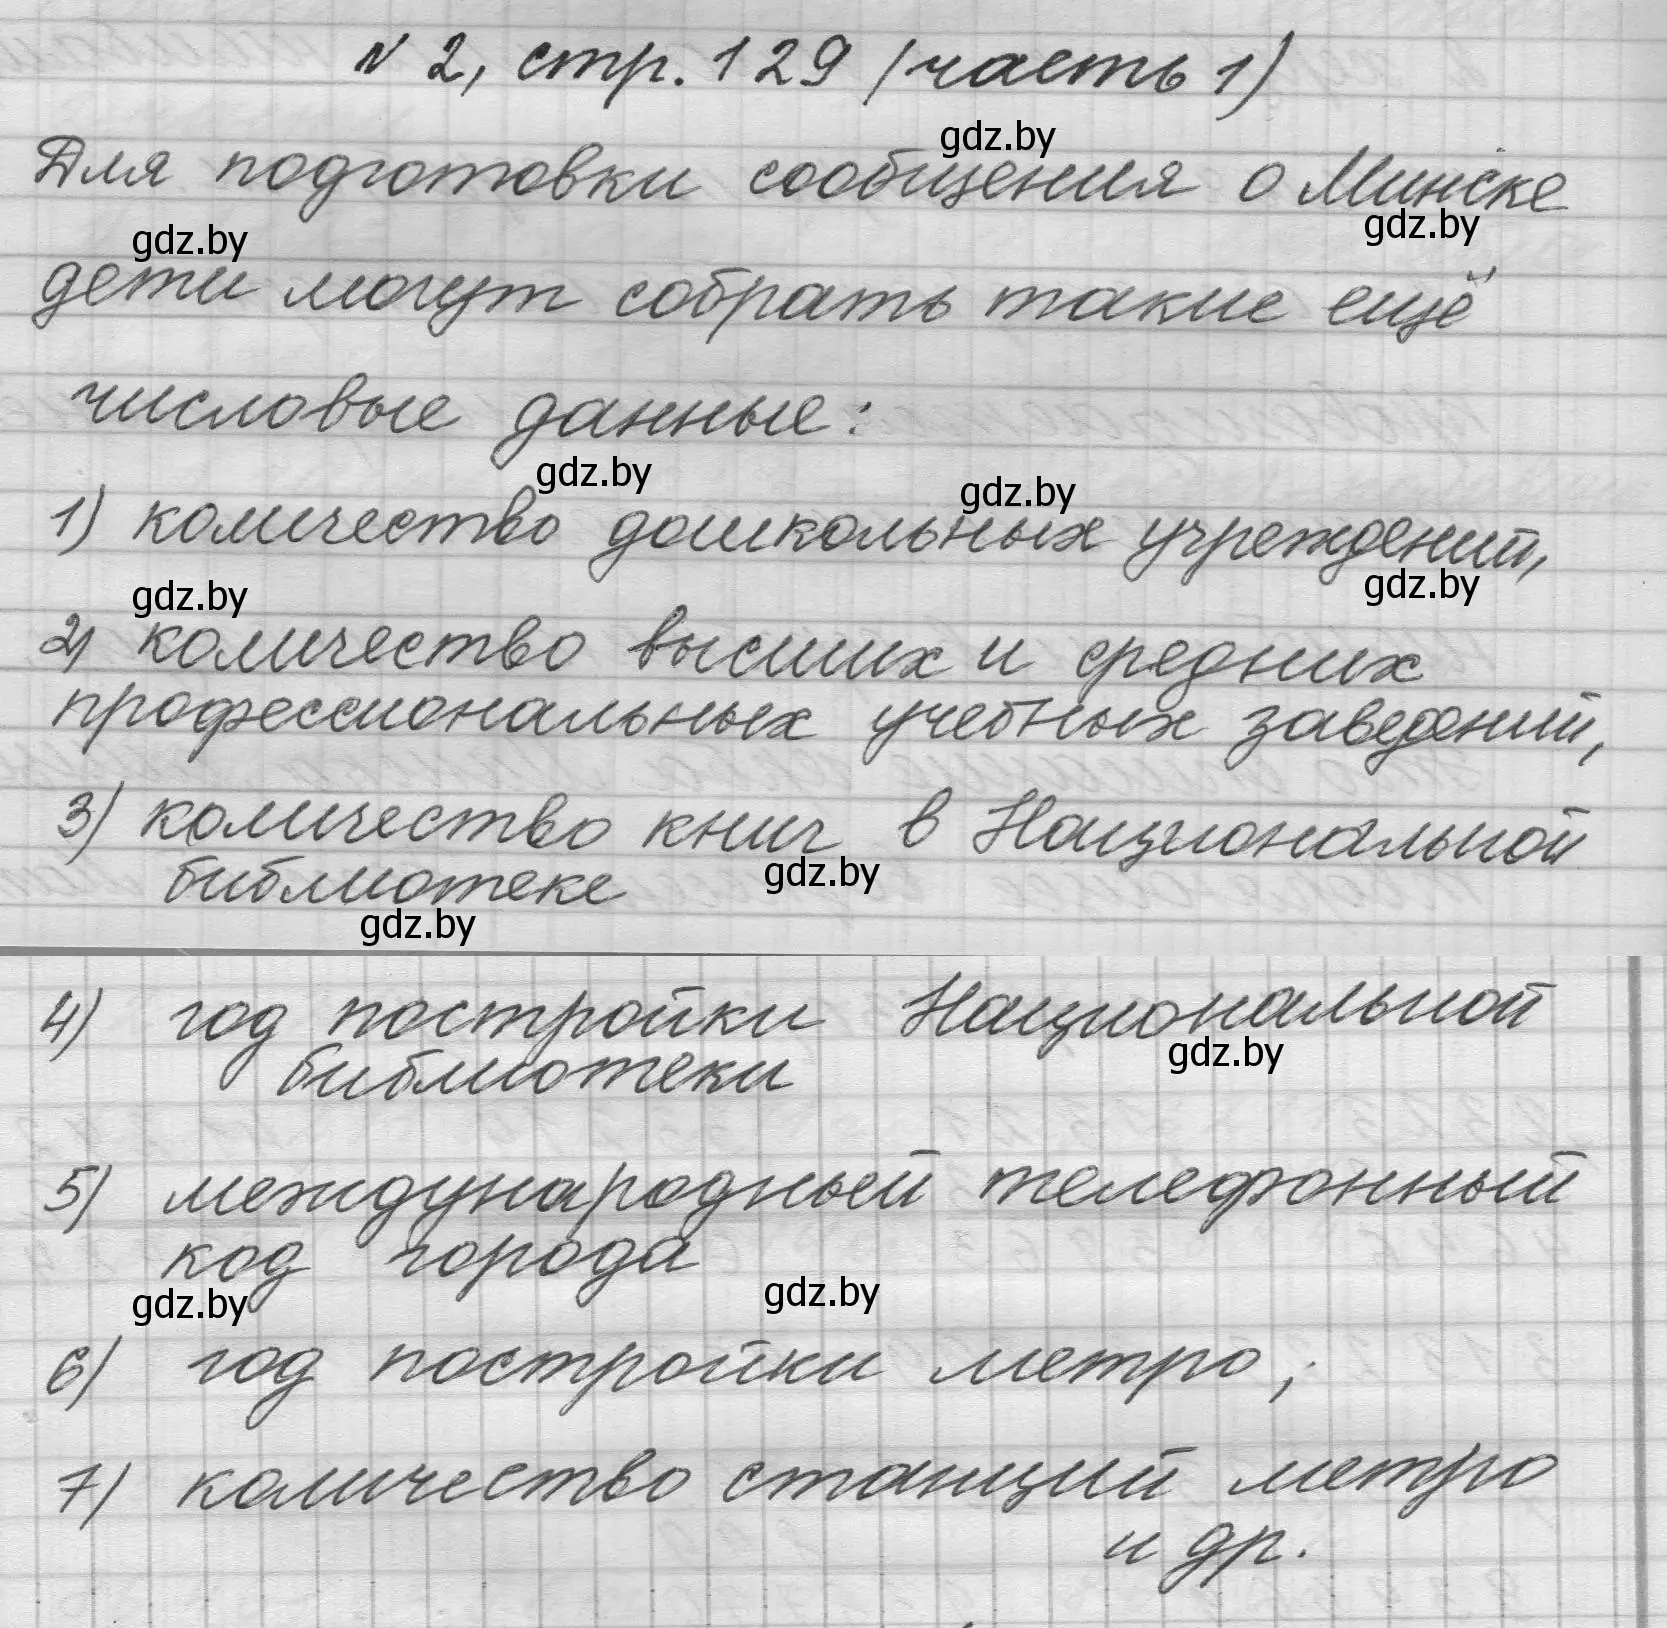 № 2, стр. 129 (часть 1)
gdz.by
Для подготовки сообщения о Минске
gdz.by gdz.by
дети могут собрать такие ещё
числовые данные:
gdz.by gdz.by
1) количество дошкольных учреждений,
gdz.by gdz.by
2) количество высших и средних
профессиональных учебных заведений,
3) количество книг в Национальной
библиотеке gdz.by
gdz.by
4) год постройки Национальной
gdz.by
библиотеки
5) международный телефонный
код города
gdz.by gdz.by
6) год постройки метро;
7) количество станций метро
и др.